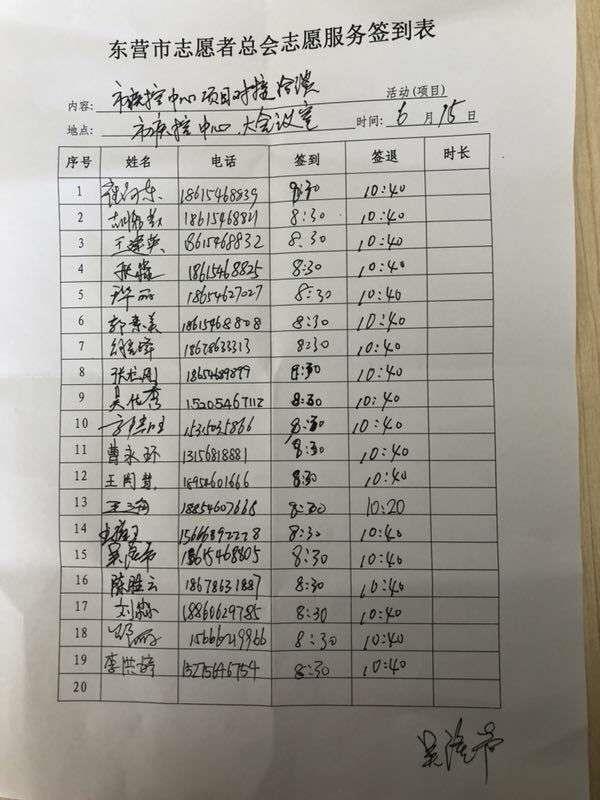 东营市志愿者总会志愿服务签到表
内容: 市疾控中心项目对接洽谈 活动(项目)
地点: 市疾控中心大会议室 时间: 6月15日
序号 姓名 电话 签到 签退 时长
1 18615468839 8:30 10:40
2 18615468821 8:30 10:40
3 王建英 18615468832 8:30 10:40
4 18615468825 8:30 10:40
5 许丽 18654627027 8:30 10:40
6 郭素美 18615468808 8:30 10:40
7 18678633313 8:30 10:40
8 18654689877 8:30 10:40
9 15205467112 8:30 10:40
10 15315035866 8:30 10:40
11 曹永环 13156818881 8:30 10:40
12 王同慧 18954601666 8:30 10:40
13 王海 18854607668 8:30 10:20
14 15666892228 8:30 10:40
15 18615468805 8:30 10:40
16 陈胜云 18678631887 8:30 10:40
17 刘淼 18860629785 8:30 10:40
18 邹丽 15666219966 8:30 10:40
19 李洪婷 15275646754 8:30 10:40
20